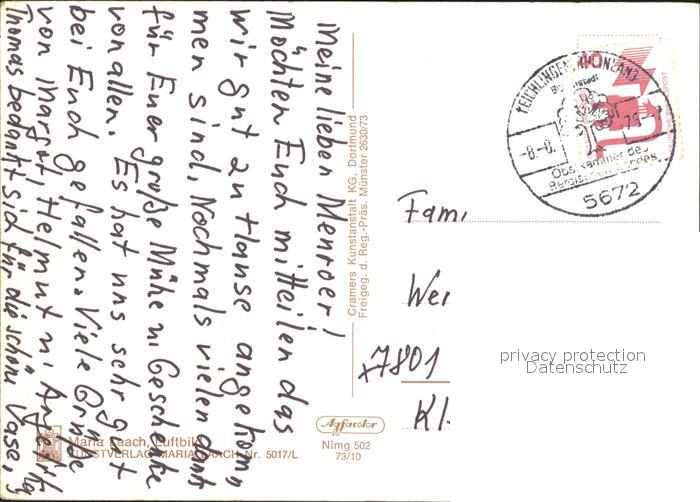 Meine lieben Menroder!
Möchten Euch mitteilen das
wir gut zu Hause angekom,
men sind, Nochmals vielen dank
für Euer große Mühe u. Geschenke
von allen. Es hat uns sehr gut
bei Euch gefallen. Viele Grüße
von Margut, Helmut u.
Thomas bedankt sich für die schöne Vase,
Cramers Kunstanstalt KG., Dortmund
Freigeg. d. Reg.-Präs. Münster 2630/73
Maria Laach, Luftbild
KUNSTVERLAG MARIA LAACH Nr. 5017/L
Agfacolor
Nimg 502
73/10
40
LEICHLINGEN (RHEINLAND)
Blütenstadt
-8.-8.
75-
Obstkammer des
Bergischen Landes
5672
Fam
Wei
x7801
Kl.
privacy protection
Datenschutz